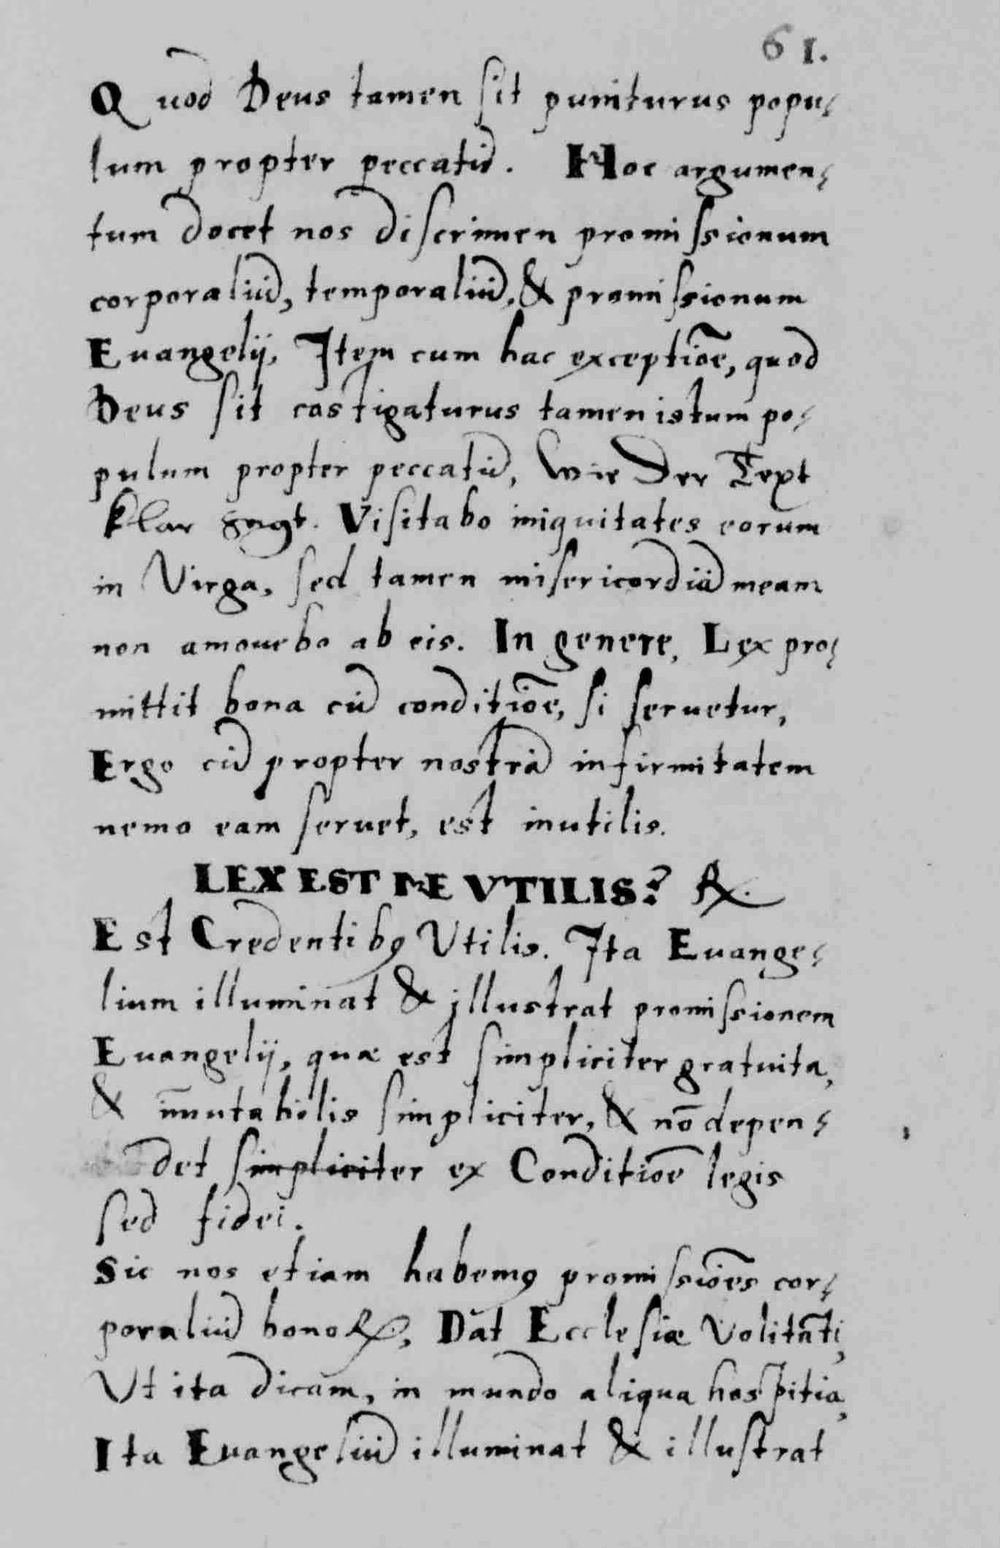 61.
Quod Deus tamen sit puniturus popu⸗
lum propter peccatū. Hoc argumen⸗
tum docet nos discrimen promissionum
corporaliū, temporaliū, & promissionum
Euangelij, Item cum hac exceptiōe, quod
Deus sit castigaturus tamen istum po⸗
pulum propter peccatū, Wie Der Text
klar sagt. Visitabo iniquitates eorum
in Virga, sed tamen misericordiā meam
non amouebo ab eis. In genere, Lex pro⸗
mittit bona cū conditiōe, si seruetur,
Ergo cū propter nostrā infirmitatem
nemo eam seruet, est inutilis.
LEX EST NE VTILIS? ℟.
Est Credentibꝯ Vtilis. Ita Euange⸗
lium illuminat & illustrat promissionem
Euangelij, quæ est simpliciter gratuita,
& im̄utabilis simpliciter, & nō depen⸗
det simpliciter ex Conditiōe legis
sed fidei.
Sic nos etiam habemꝯ promissiōes cor⸗
poraliū bonoꝝ, Dat Ecclesiæ Volitāti,
Vt ita dicam, in mundo aliqua hospitia,
Ita Euangeliū illuminat & illustrat